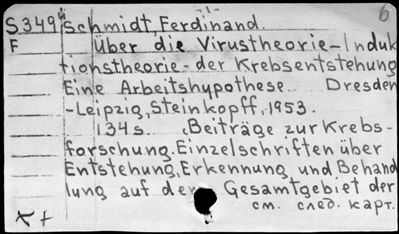 6
S349 Schmidt, Ferdinand.
F Über die Virustheorie-Induk
tionstheorie-der Krebsentstehung
Eine Arbeitshypothese. Dresden
-Leipzig, Steinkopff, 1953.
134s. (Beiträge zur Krebs-
forschung. Einzelschriften über
Entstehung, Erkennung und Behand
lung auf dem Gesamtgebiet der
см. след. карт.